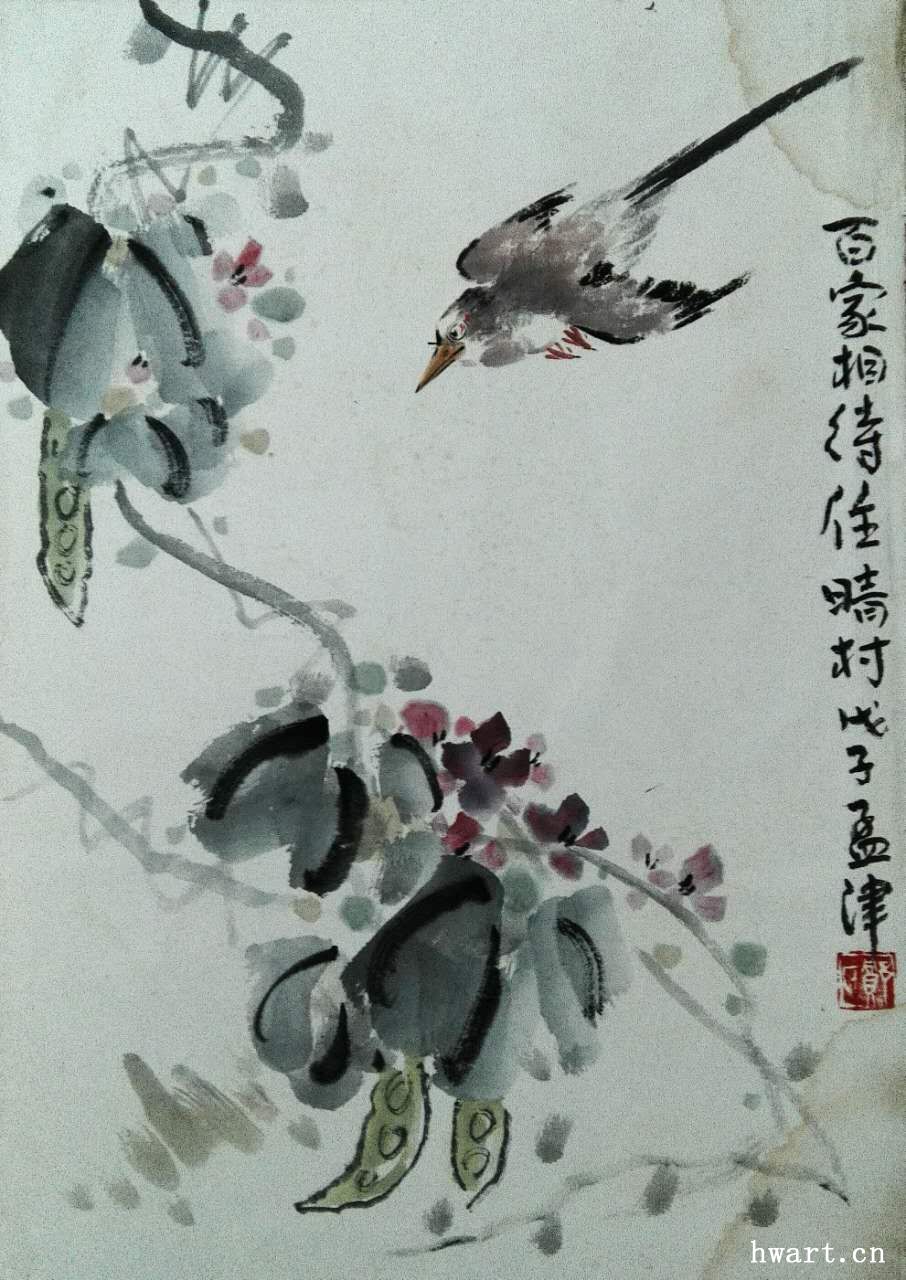 百家相待住晴村戊子孟津
鄭
hwart.cn